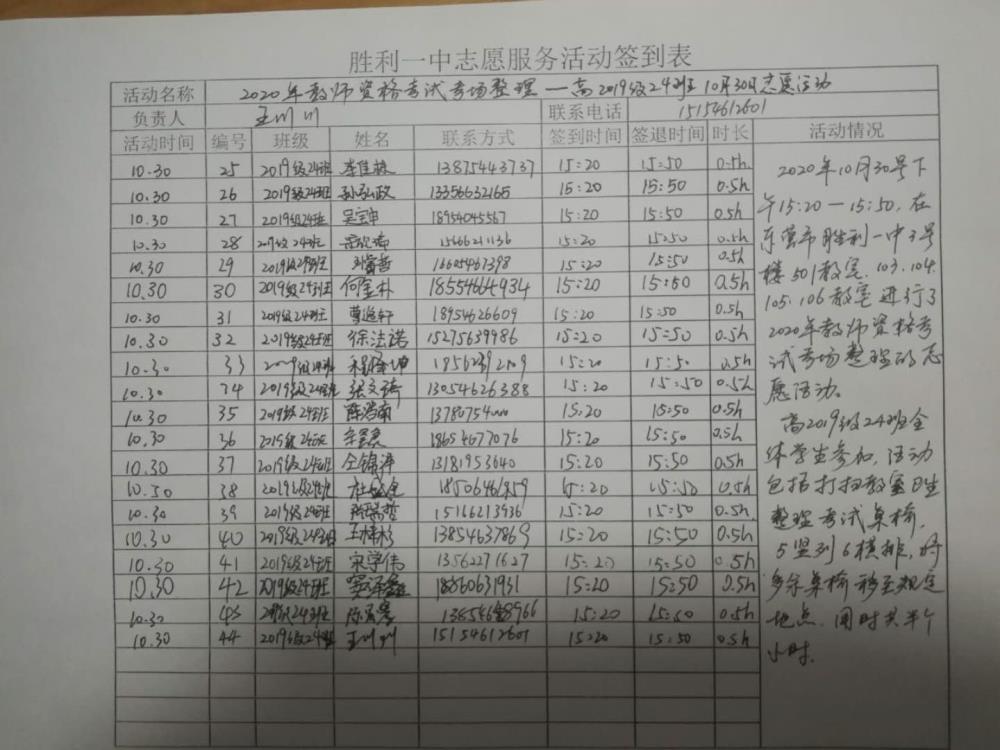 胜利一中志愿服务活动签到表
活动名称 2020年教师资格考试考场整理—高2019级24班10月30日志愿活动
负责人 王川川 联系电话 15154612601
活动时间 编号 班级 姓名 联系方式 签到时间 签退时间 时长 活动情况
10.30 25 2019级24班 李佳 13875443737 15:20 15:50 0.5h
10.30 26 2019级24班 孙弘政 13356632165 15:20 15:50 0.5h
10.30 27 2019级24班 吴宝申 18954045567 15:20 15:50 0.5h
10.30 28 2019级24班 15666211136 15:20 15:50 0.5h
10.30 29 2019级24班 16605461398 15:20 15:50 0.5h
10.30 30 2019级24班 何金朴 18554664934 15:20 15:50 0.5h
10.30 31 2019级24班 曹逸轩 18954626609 15:20 15:50 0.5h
10.30 32 2019级24班 徐法诺 15275639986 15:20 15:50 0.5h
10.30 33 2009级24班 15:20 15:50 0.5h
10.30 34 2019级24班 张文琦 13054626388 15:20 15:50 0.5h
10.30 35 2019级24班 薛浩南 13780754 15:20 15:50 0.5h
10.30 36 2019级24班 18654677076 15:20 15:50 0.5h
10.30 37 2019级24班 仝锦泽 13181953640 15:20 15:50 0.5h
10.30 38 2019级24班 18506461859 15:20 15:50 0.5h
10.30 39 2019级24班 15166213936 15:20 15:50 0.5h
10.30 40 2019级24班 13854637869 15:20 15:50 0.5h
10.30 41 2019级24班 宋学伟 13562271627 15:20 15:50 0.5h
10.30 42 2019级24班 18860631931 15:20 15:50 0.5h
10.30 43 2019级24班 15:20 15:50 0.5h
10.30 44 2019级24班 王川川 15154612601 15:20 15:50 0.5h
2020年10月30号下
午15:20—15:50,在
东营市胜利一中3号
楼501教室、103、104、
105、106教室进行了
2020年教师资格考
试考场整理的志
愿活动。
高2019级24班全
体学生参加,活动
包括打扫教室卫生
整理考试桌椅,
5竖列6横排,将
多余桌椅移至规定
地点,用时共半个
小时.